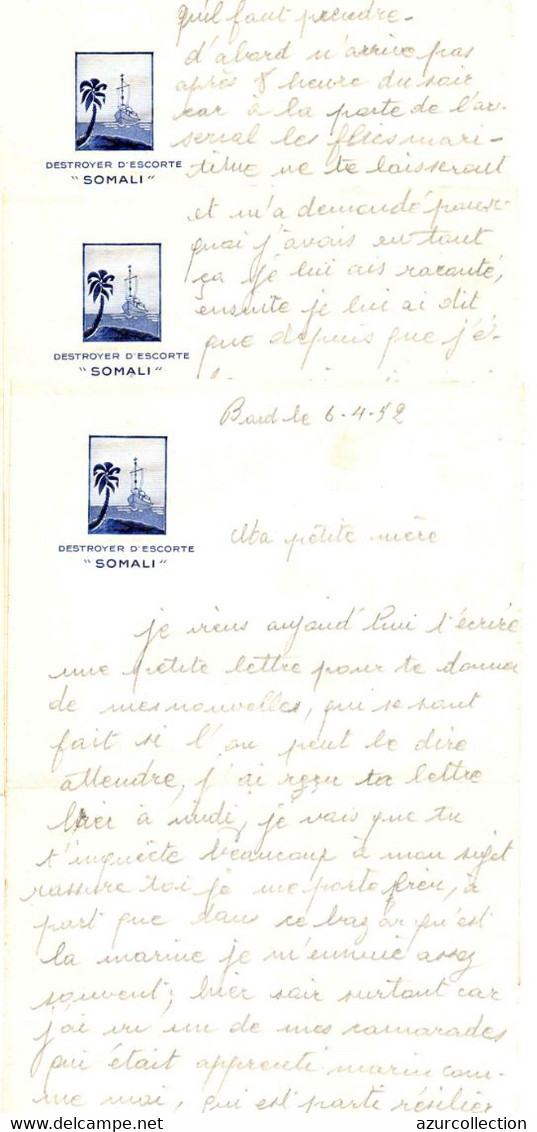 qu'il faut prendre.
d'abord n'arrive pas
après 8 heure du soir
car à la porte de l'ar-
senal les flics mari-
time ne te laisseront
DESTROYER D'ESCORTE
"SOMALI"
et m'a demandé pour-
quoi j'avais eu tout
ça je lui ais raconté,
ensuite je lui ai dit
que depuis que j'é-
DESTROYER D'ESCORTE
"SOMALI"
Bord le 6-4-52
DESTROYER D'ESCORTE
"SOMALI"
Ma petite mère
je viens aujourd'hui t'écrire
une petite lettre pour te donner
de mes nouvelles, qui se sont
fait si l'on peut le dire
attendre, j'ai reçu ta lettre
hier à midi, je vois que tu
t'inquiète beaucoup à mon sujet
rassure toi je me porte bien, à
part que dans ce bazar qu'est
la marine je m'ennuie assez
souvent, hier soir surtout car
j'ai vu un de mes camarades
qui était apprenti marin com-
me moi, qui est parti résilier
azurcollection